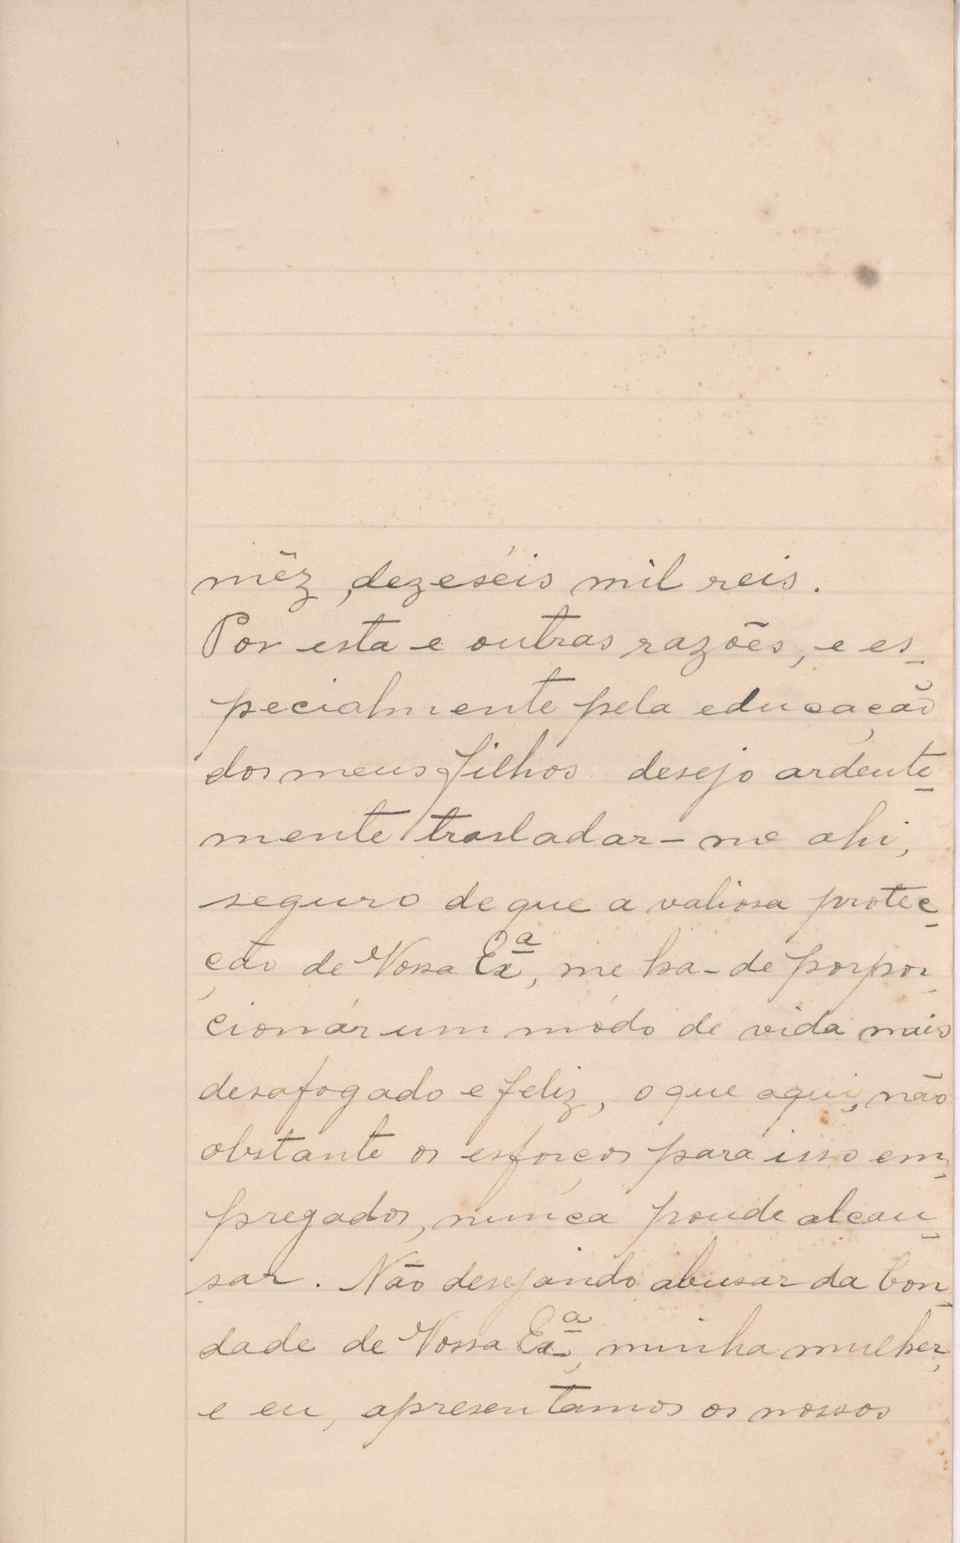 mêz, dezeséis mil reis.
Por esta e outras razões, e es-
pecialmente pela educação
dos meus filhos desejo ardente-
mente trasladar-me ahi,
seguro de que a valiosa protec-
ção de Vossa Exª, me ha-de porpor-
cionár um módo de vida mais
desafogado e feliz, o que aqui, não
obstante os esforços para isso em-
pregados, nunca poude alcan-
sar. Não desejando abusar da bon-
dade de Vossa Exª, minha mulher,
e eu, apresentamos os nossos